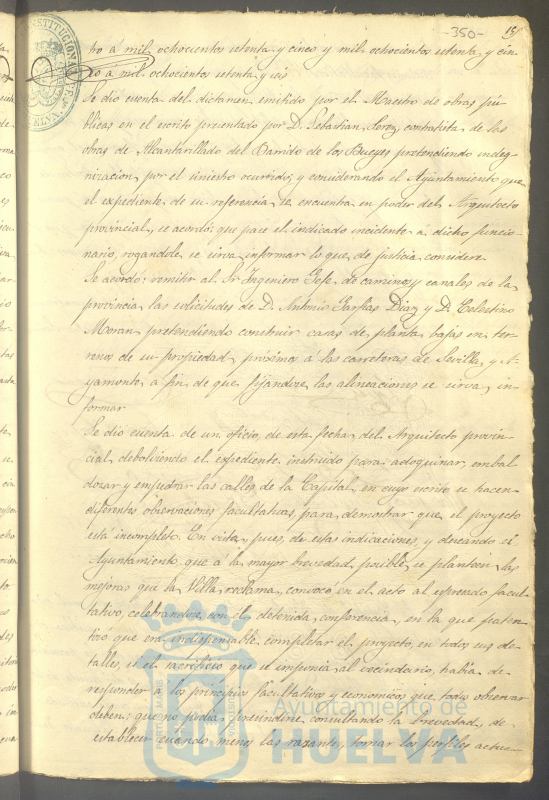 -350-
bro á mil ochocientos setenta y cinco y mil ochocientos setenta y cin-
co á mil ochocientos setenta y seis
Se dio cuenta del dictamen emitido por el Maestro de obras pú-
blicas en el escrito presentado por D. Sebastian Lorez contratista de las
obras de Alcantarillado del Barrido de los Bueyes pretendiendo indeg-
nizacion por el siniestro ocurrido; y considerando el Ayuntamiento que
el expediente de su referencia se encuentra en poder del Arquitecto
provincial, se acordó: que pase el indicado incidente á dicho funcio-
nario, rogandole se sirva informar lo que de justicia considere
Se acordó: remitir al Sr Ingeniero Gefe de caminos y canales de la
provincia las solicitudes de D. Antonio Garfias Diaz y D. Celestino
Moran pretendiendo construir casas de planta bajas en ter-
renos de su propiedad, próximo a las carreteras de Sevilla y A-
yamonte, a fin de que fijandose las alineaciones se sirva in-
formar
Se dio cuenta de un oficio de esta fecha del Arquitecto provin-
cial debolviendo el expediente instruido para adoquinar, embal
dosar y empedrar las calles de la Capital, en cuyo escrito se hacen
diferentes observaciones facultativas para demostrar que el proyecto
está incompleto. En vista, pues, de estas indicaciones, y deseando el
Ayuntamiento que á la mayor brevedad posible se planteen las
mejoras que la Villa reclama, convocó en el acto al espresado facul-
tativo, celebrandose con él detenida conferencia, en la que paten-
tizó que era indispensable completar el proyecto en todos sus de-
talles, si el sacrificio que se imponia al vecindario, habia de
responder á los principios facultativos y economicos que todos observar
deben; que no podia prescindirse consultando la brevedad, de
establecer cuando menos las rasantes, tomar los perfiles actua-
Ayuntamiento de
HUELVA